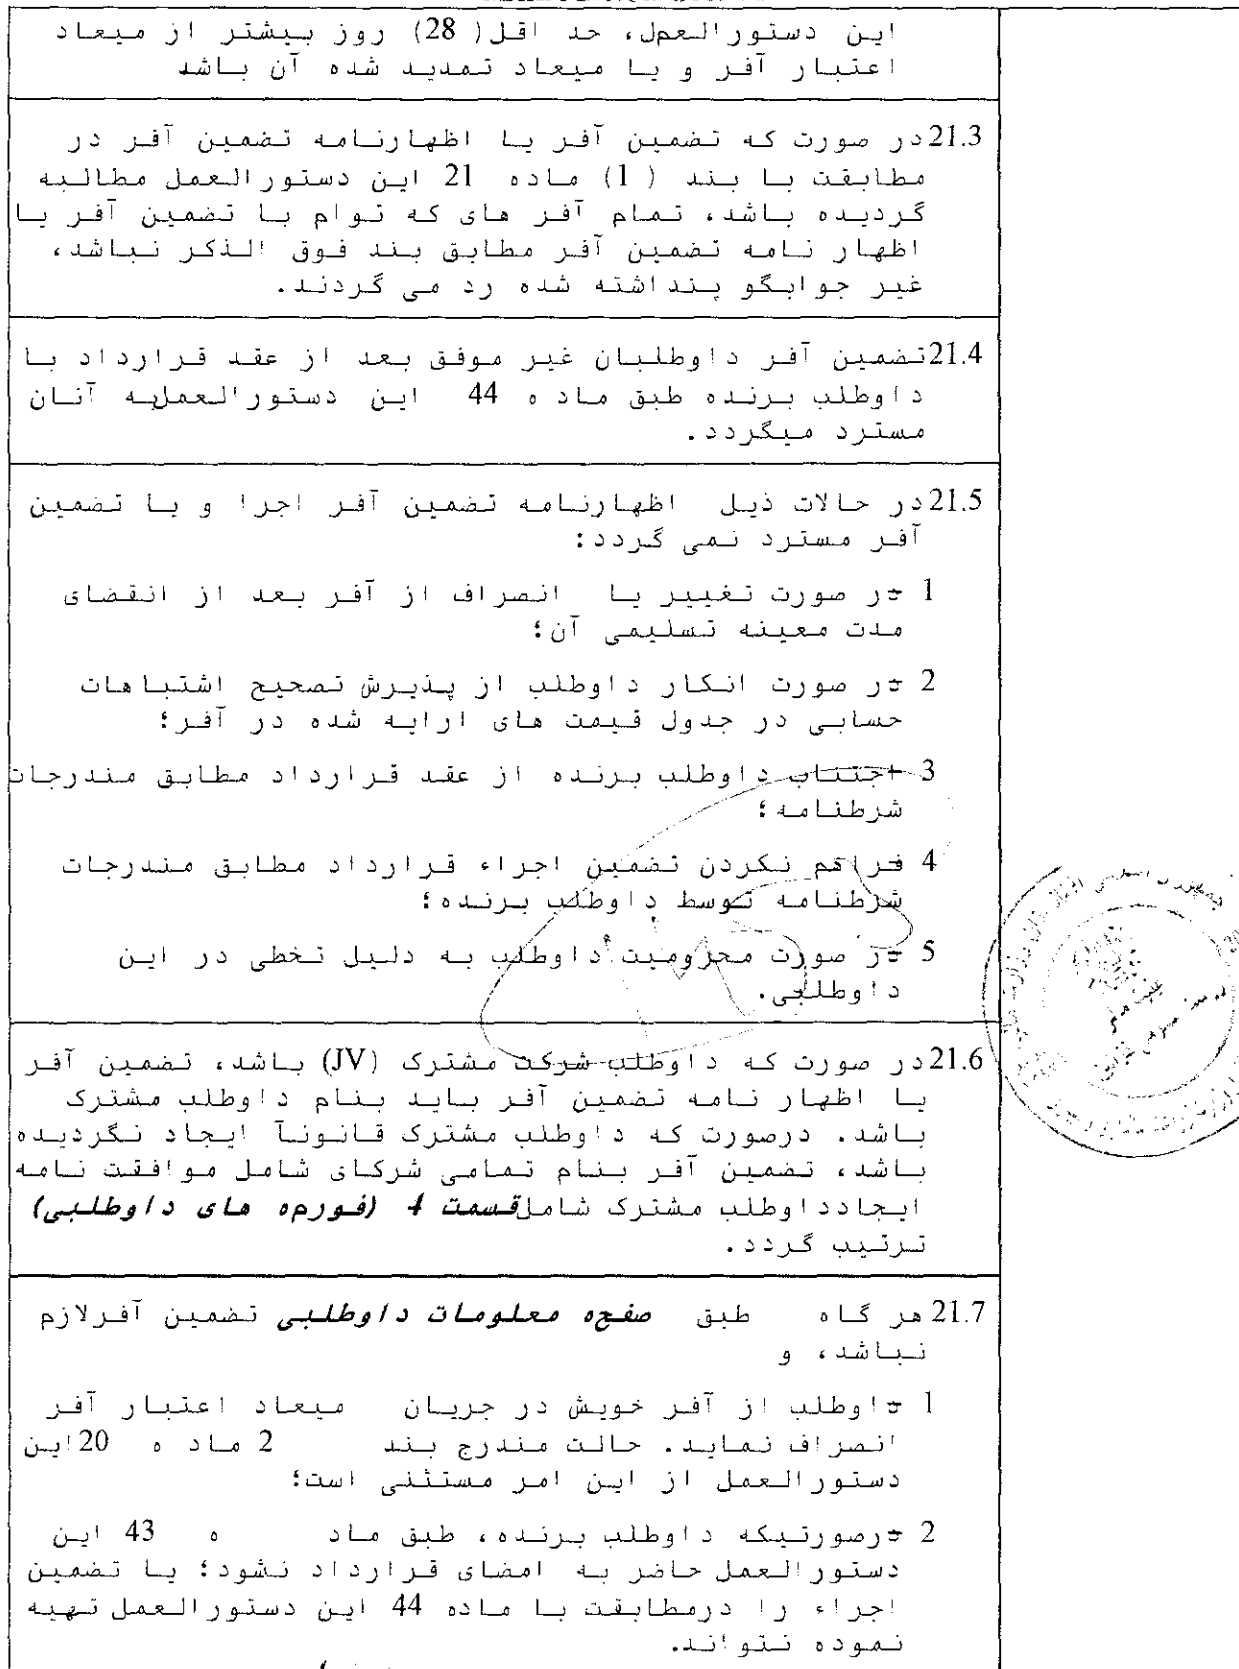 این دستورالعمل، حد اقل( 28) روز بیشتر از میعاد
اعتبار آفر و یا میعاد تمدید شده آن باشد
21.3 در صورت که تضمین آفر یا اظهارنامه تضمین آفر در
مطابقت با بند ( 1) ماده 21 این دستورالعمل مطالبه
گردیده باشد، تمام آفر های که توام با تضمین آفر یا
اظهار نامه تضمین آفر مطابق بند فوق الذکر نباشد،
غیر جوابگو پنداشته شده رد می گردند.
21.4 تضمین آفر داوطلبان غیر موفق بعد از عقد قرارداد با
داوطلب برنده طبق ماد ه 44 این دستورالعمل به آنان
مسترد میگردد.
21.5 در حالات ذیل اظهارنامه تضمین آفر اجرا و یا تضمین
آفر مسترد نمی گردد:
1 در صورت تغییر یا انصراف از آفر بعد از انقضای
مدت معینه تسلیمی آن؛
2 در صورت انکار داوطلب از پذیرش تصحیح اشتباهات
حسابی در جدول قیمت های ارایه شده در آفر؛
3 اجتناب داوطلب برنده از عقد قرارداد مطابق مندرجات
شرطنامه؛
4 فراهم نکردن تضمین اجراء قرارداد مطابق مندرجات
شرطنامه توسط داوطلب برنده؛
5 در صورت محرومیت داوطلب به دلیل تخطی در این
داوطلبی.
21.6 در صورت که داوطلب شرکت مشترک (JV) باشد، تضمین آفر
یا اظهار نامه تضمین آفر باید بنام داوطلب مشترک
باشد. درصورت که داوطلب مشترک قانونآ ایجاد نگردیده
باشد، تضمین آفر بنام تمامی شرکای شامل موافقت نامه
ایجادداوطلب مشترک شامل قسمت 4 (فورمه های داوطلبی)
ترتیب گردد.
21.7 هر گاه طبق صفحه معلومات داوطلبی تضمین آفرلازم
نباشد، و
1 داوطلب از آفر خویش در جریان میعاد اعتبار آفر
انصراف نماید. حالت مندرج بند 2 ماد ه 20 این
دستورالعمل از این امر مستثنی است؛
2 درصورتیکه داوطلب برنده، طبق ماد ه 43 این
دستورالعمل حاضر به امضای قرارداد نشود؛ یا تضمین
اجراء را درمطابقت با ماده 44 این دستورالعمل تهیه
نموده نتواند.